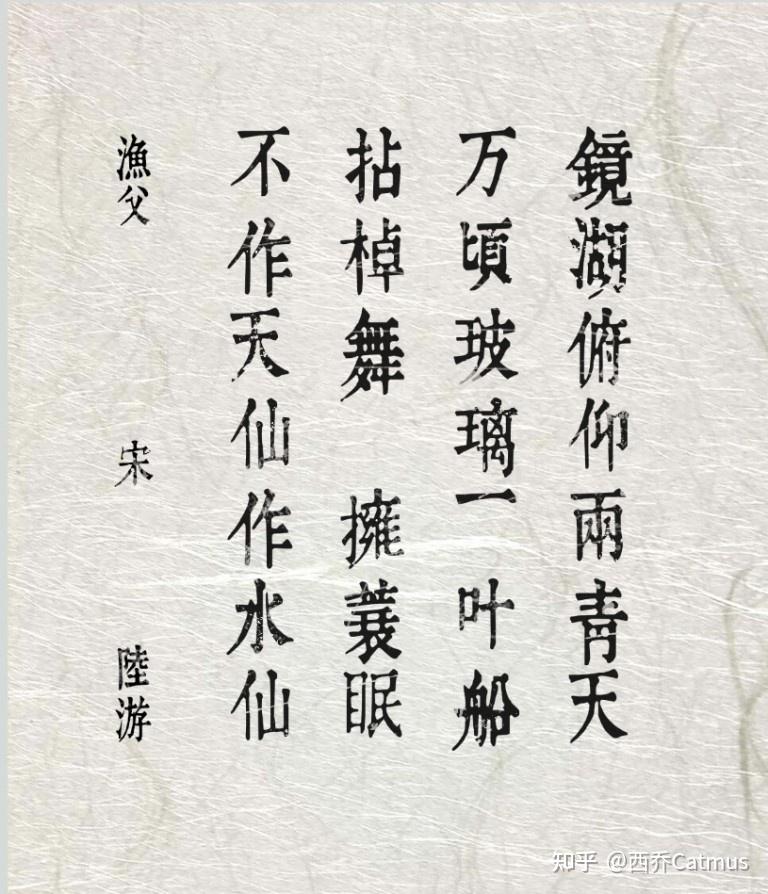 鏡湖俯仰兩青天
万頃玻璃一叶船
拈棹舞 擁蓑眠
不作天仙作水仙
漁父 宋 陸游
知乎 @西乔Catmus